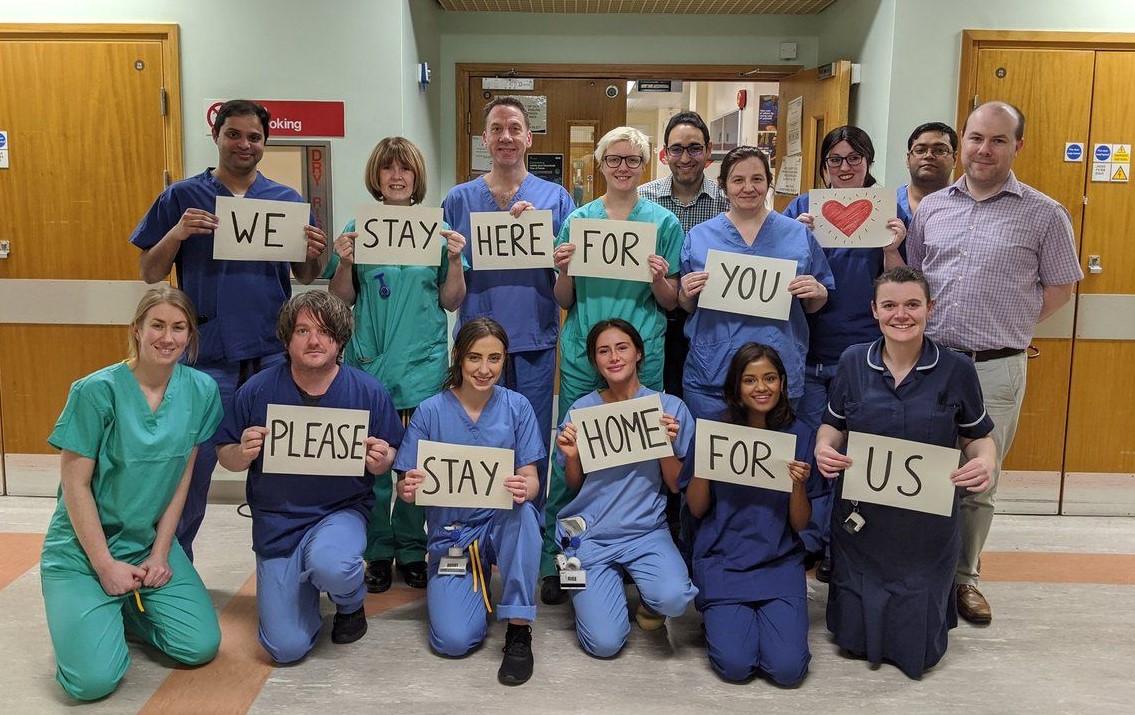 oking
DRY
WE STAY HERE FOR YOU
PLEASE STAY HOME FOR US